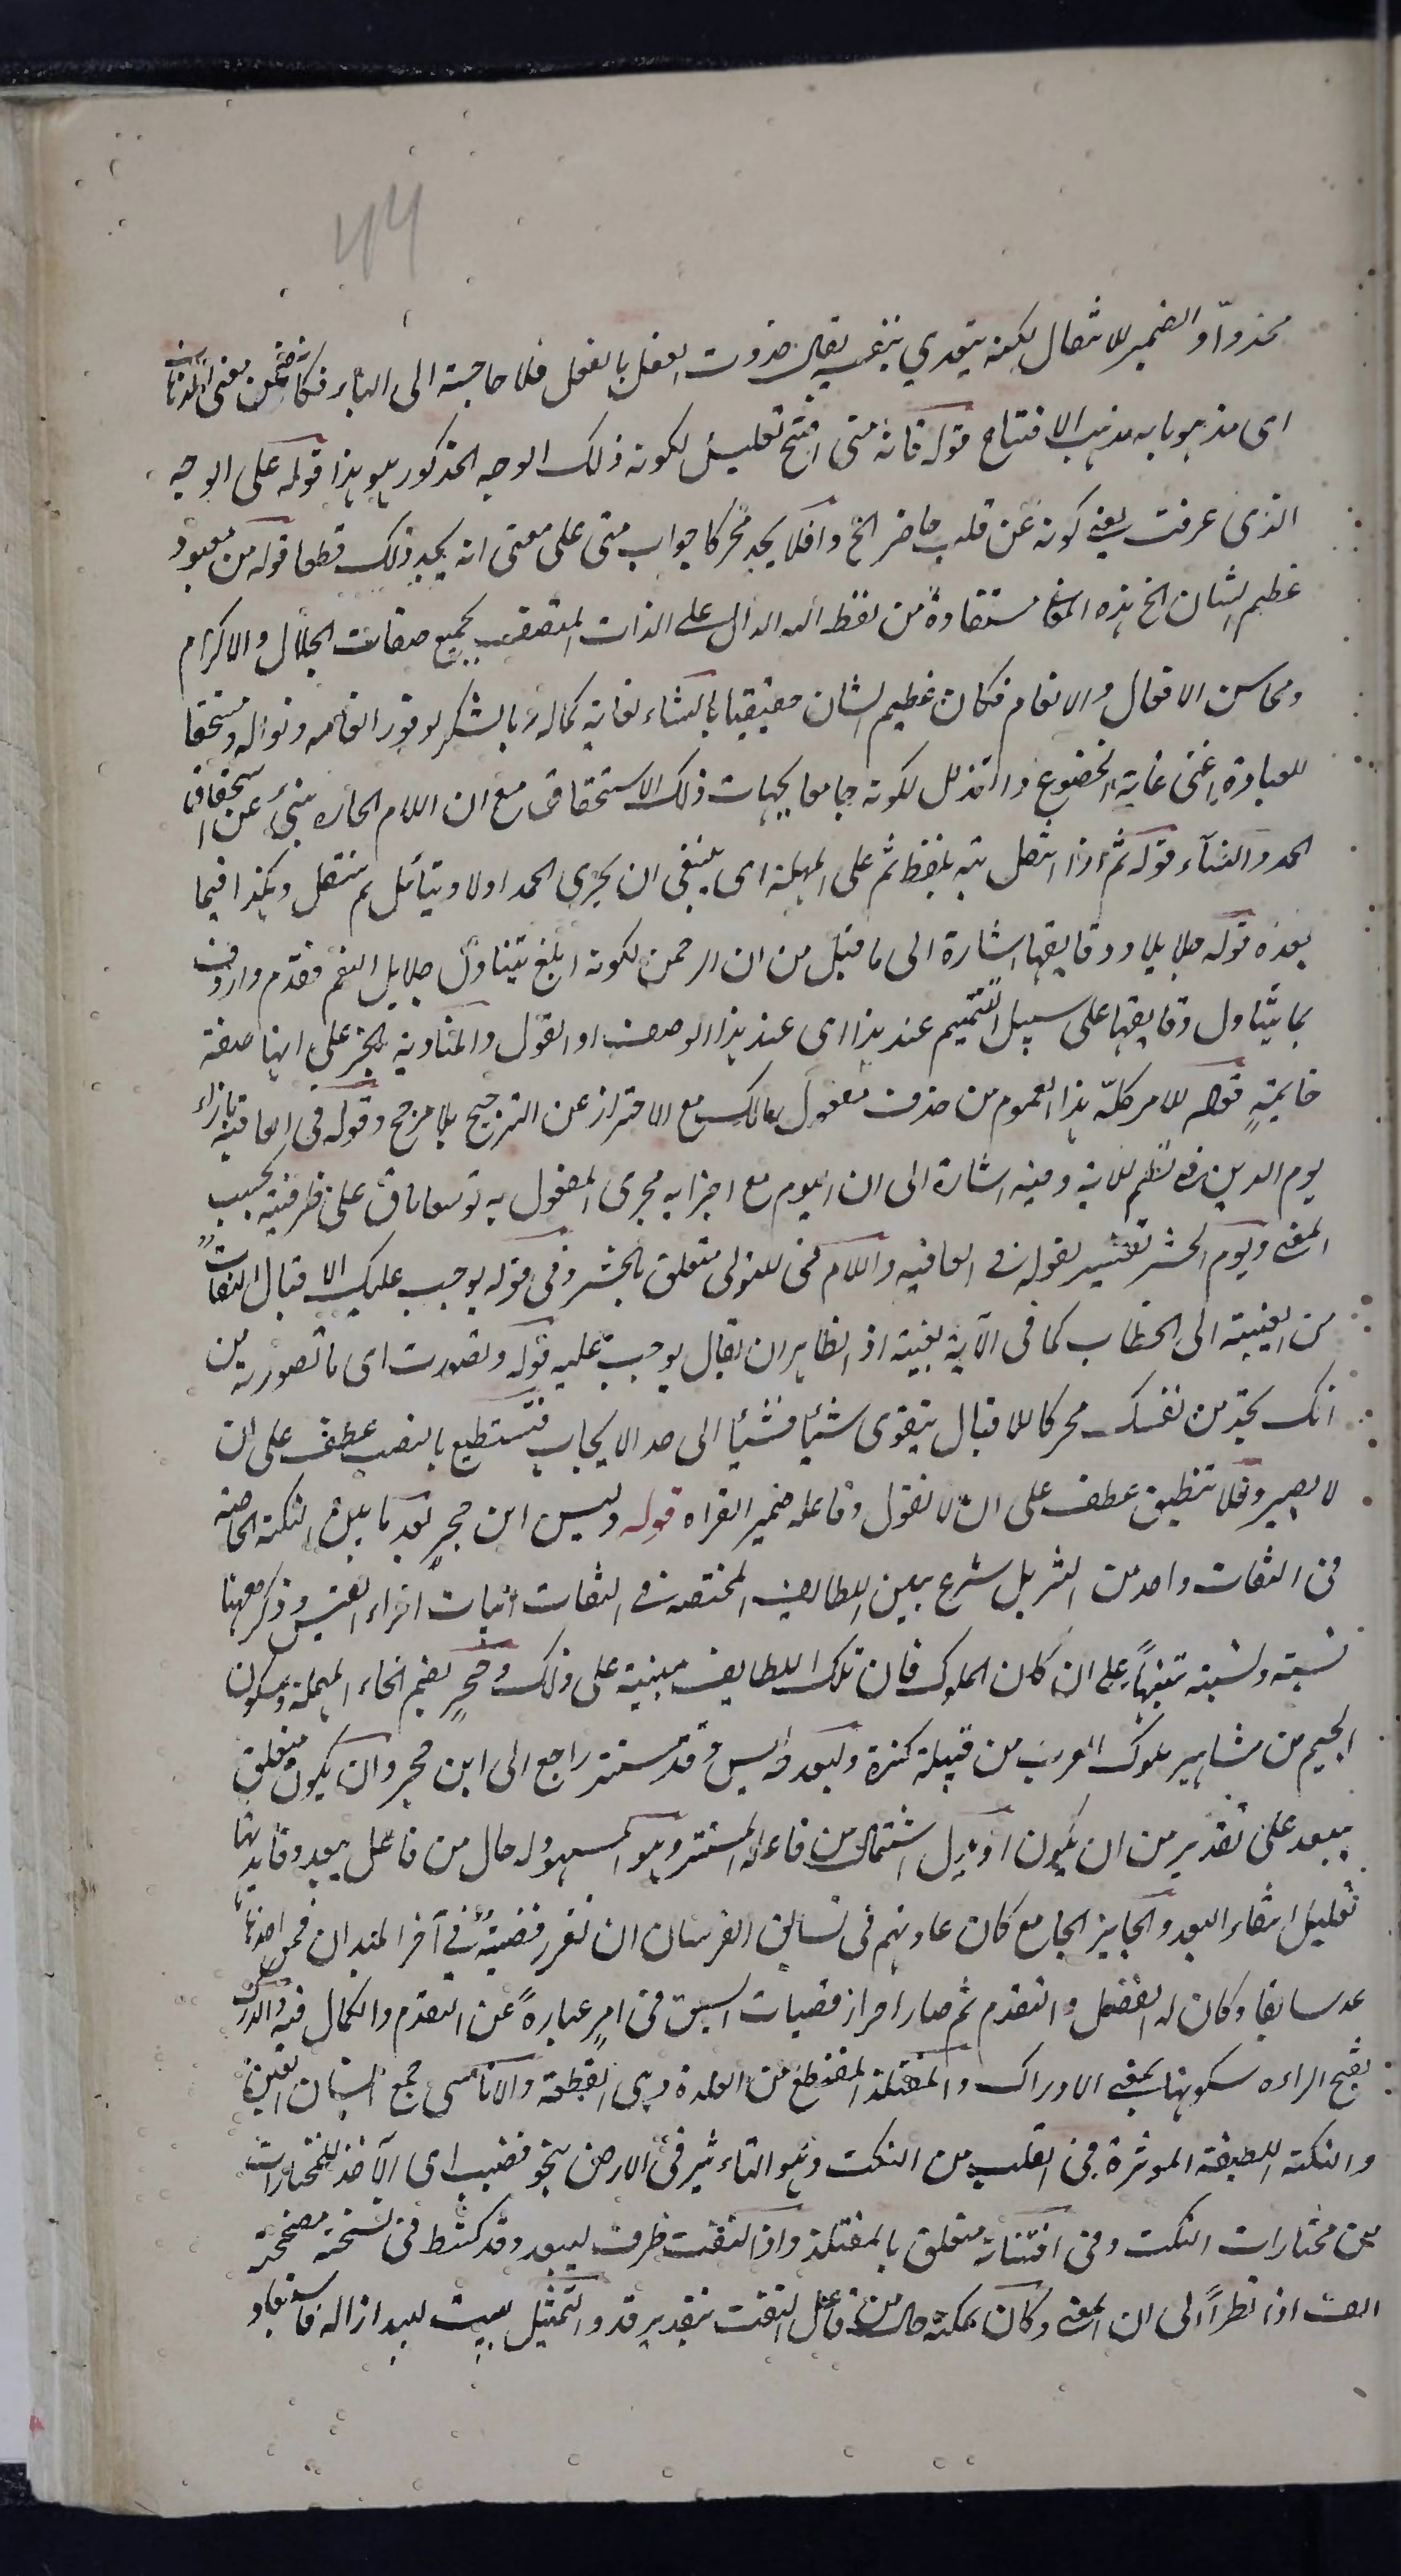 44
محذوا والضمير للامتثال لكنه يتعدي بنفسه يقال حذوت النعل بالنعل فلا حاجة الى الباء فكانه ضمن معنى الاتيان
اى مذهوبا به مذهب الافتتاح قوله فانه متى افتتح تعليل لكونه ذلك الوجه المذكور هو هذا قوله على الوجه
الذى عرفت يعنى كونه عن قلب حاضر الخ وافلا يجد محركا جواب متى على معنى انه يجد ذلك قطعا قوله من معبود
عظيم الشان الخ هذه المعانى مستفادة من لفظ الله الدال على الذات المتصف بجميع صفات الجلال والاكرام
ومحاسن الافعال والانعام فكان عظيم الشان حقيقيا بالثناء لغاية كماله وبالشكر لوفور انعامه ونواله ومستحقا
للعبادة اعنى غاية الخضوع والتذلل لكونه جامعا لجهات ذلك الاستحقاق مع ان اللام الجاره ينبئ عن استحقاق
الحمد والثناء قوله ثم اذا انتقل نبه بلفظ ثم على المهلة اى ينبغى ان يجرى الحمد اولا ويتأمل ثم ينتقل وهكذا فيما
بعده قوله جلايلها ودقايقها اشارة الى ما قيل من ان الرحمن لكونه ابلغ يتناول جلايل النعم فقدم واردف
بما يتناول دقايقها على سبيل التتميم عند هذا اى عند هذا الوصف او القول والمناوبة بالجر على انها صفة
خاتمة قوله للامر كله هذا العموم من حذف مفعول مالك مع الاحتراز عن الترجيح بلا مرجح وقوله فى العاقبة بازاء
يوم الدين فى نظم الاية وفيه اشارة الى ان اليوم مع اجرايه مجرى المفعول به توسعا باق على ظرفيته بحسب
المعنى ويوم الحشر تفسير لقوله فى العاقبه واللام فى للمولى متعلق بالحشر وفى قوله يوجب عليك الاقبال التفات
من الغيبة الى الخطاب كما فى الآية بعينه اذ الظاهر ان يقال يوجب عليه قوله وتصورت اى ما تصورته من
انك تجد من نفسك محركا للاقبال يتقوى شيئا فشيئا الى حد الايجاب فتستطيع بالنصب عطف على ان
لا يصير وفلا تنطبق عطف على ان لا نقول وفاعله ضمير القراه قوله وليس ابن حجر بعد ما بين النكتة الخاصة
فى التفات واحد من التنزيل شرع يبين اللطايف المختصة فى التفات ابيات امرء القيس وذكر معها
نسبته ونسبته تنبيها على انه كان من الملوك فان تلك اللطايف مبنية على ذلك وحجر بضم الحاء المهملة وسكون
الجيم من مشاهير ملوك العرب من قبيلة كندة وليبعد فى ليس وقد مستتر راجع الى ابن حجر وان يكون متعلق
بيبعد على تقدير من ان يكون او بدل اشتمال من فاعله المستتر وهو المشهود له حال من فاعل يبعد وفايدتها
تعليل انتفاء البعد والحايز الجامع كان عادتهم فى تسابق الفرسان ان تغرز قصبة فى آخر الميدان فمن اخذها
عد سابقا وكان له الفضل والتقدم ثم صار احراز قصبات السبق فى امر عبارة عن التقدم والكمال فيه والدرك
بفتح الراء وسكونها بمعنى الادراك والمفتلذ المقتطع من الفلذة وهى القطعة والاناسى جمع انسان العين
والنكتة اللطيفة الموثرة فى القلب من النكت وهو التاثير فى الارض بنحو قضيب اى الآخذ للمختارات
من مختارات النكت وفى افتنانه متعلق بالمفتلذ واذا التفت ظرف ليبعد وقد كشط فى نسخة مصححة
الف اذا نظرا الى ان المعنى وكان يمكنه حال من فاعل التفت بتقدير قد والتمثيل ببيت لبيد ازاله فاستفاد